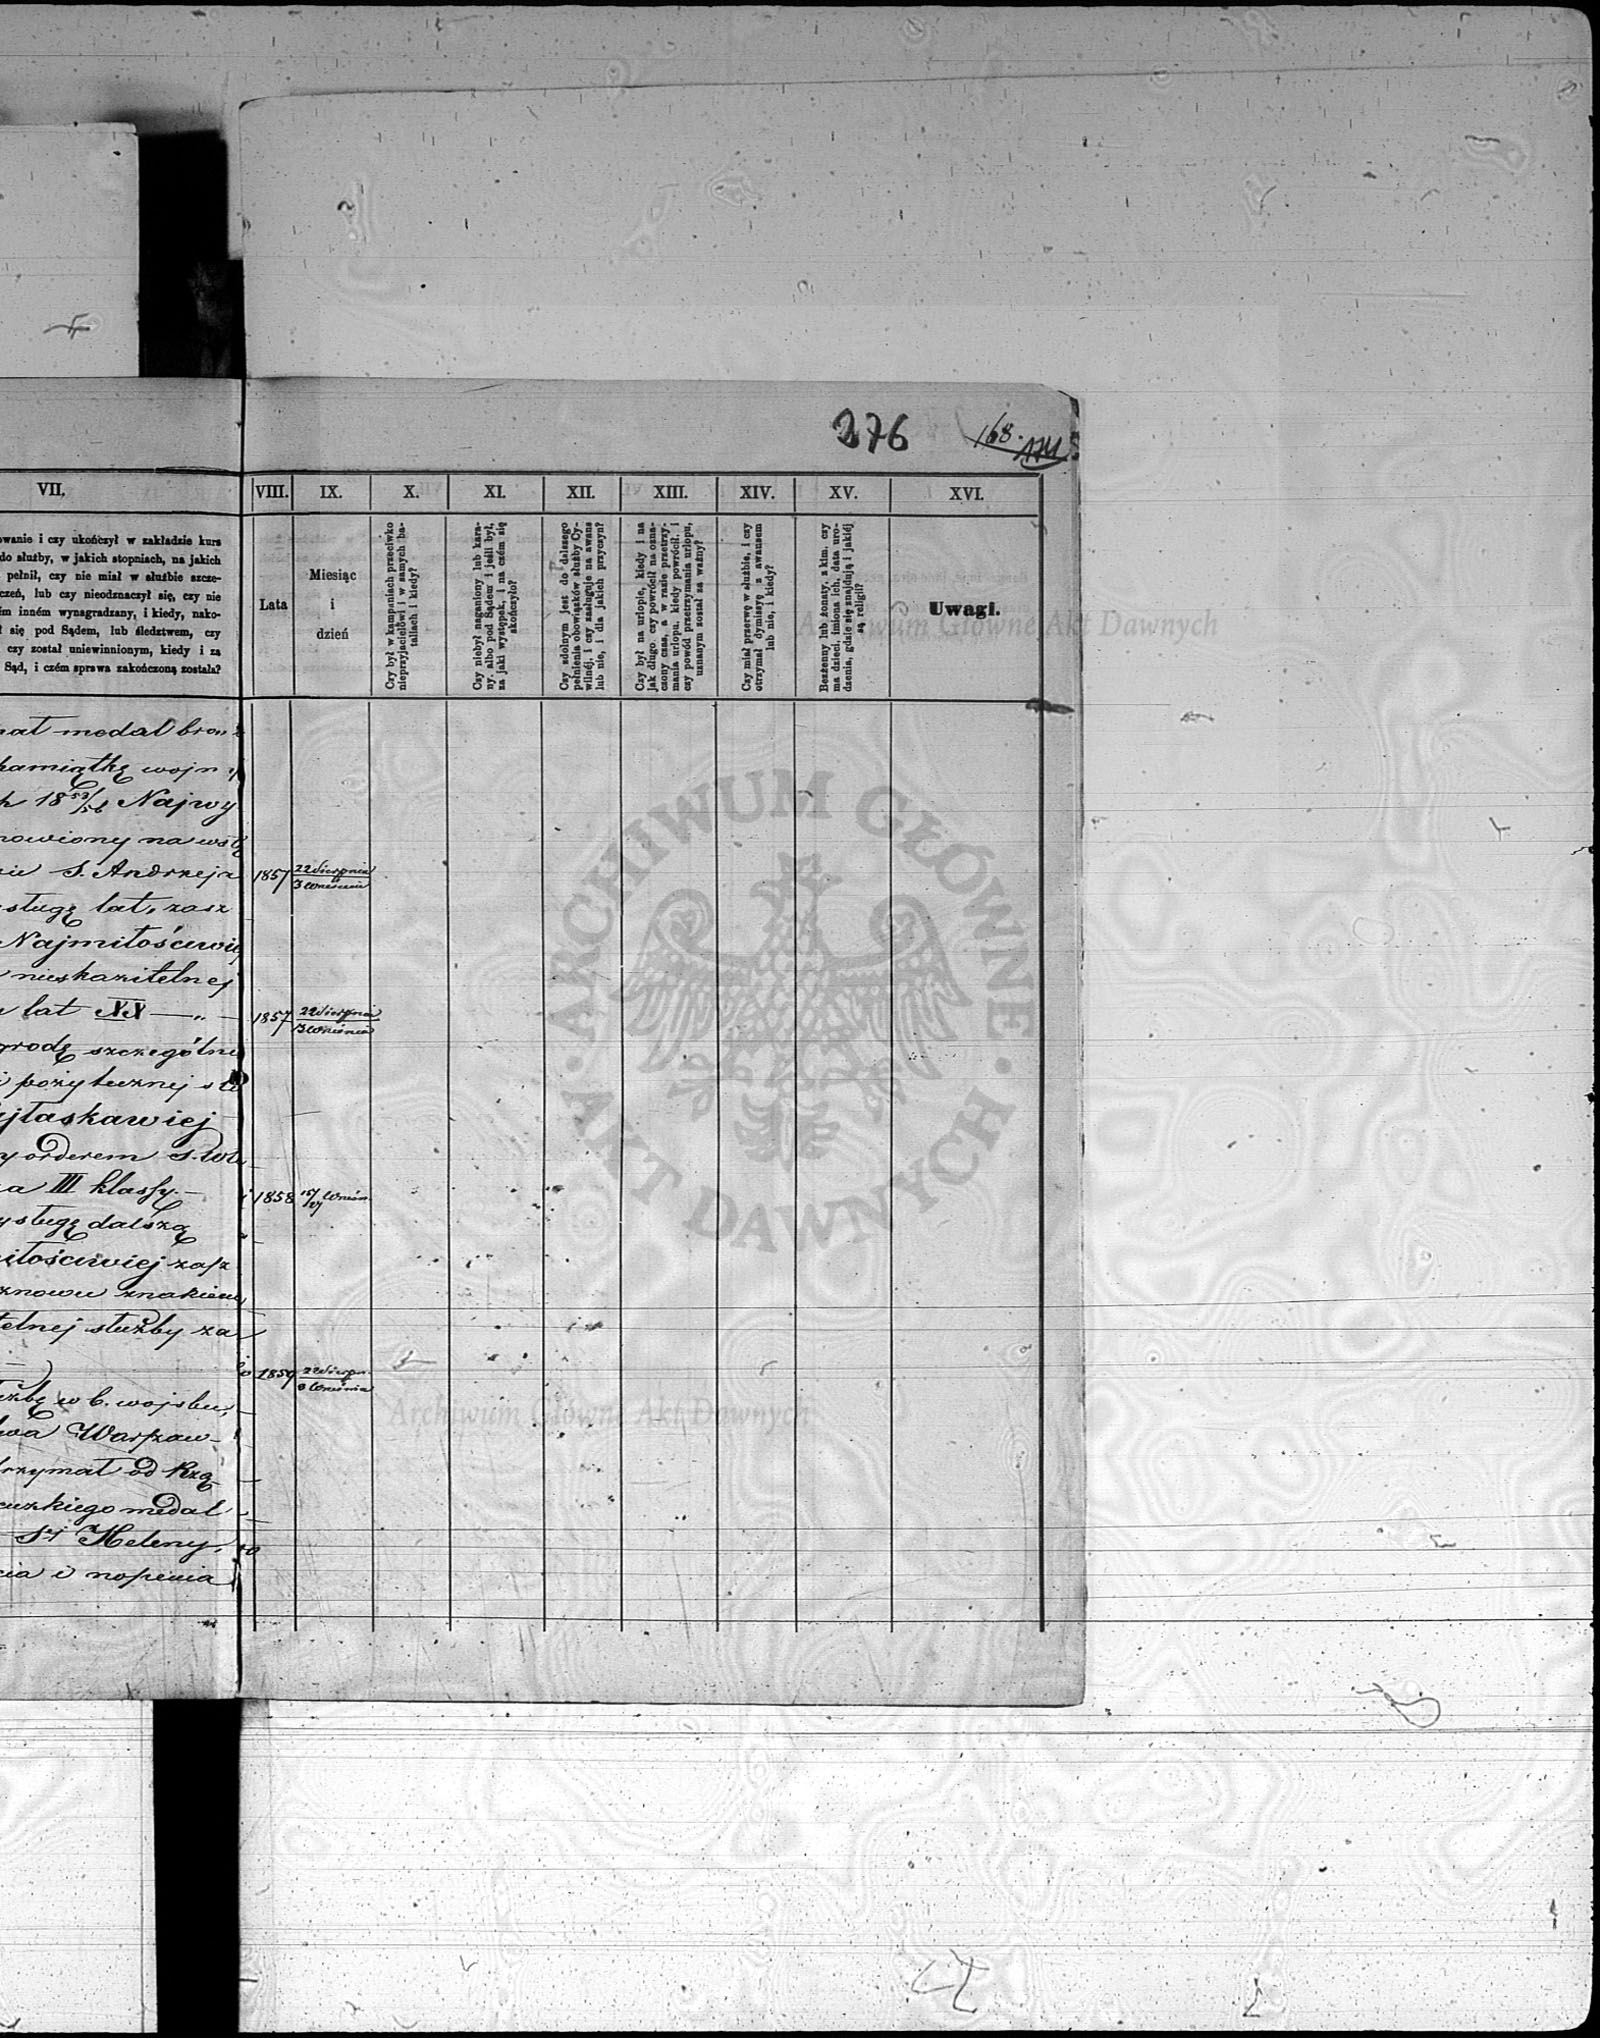 276
168.
VII.
VIII. IX. X. XI. XII. XIII. XIV. XV. XVI.
owanie i czy ukończył w zakładzie kurs
do służby, w jakich stopniach, na jakich
pełnił, czy nie miał w służbie szcze-
czeń, lub czy nieodznaczył się, czy nie
ém inném wynagradzany, i kiedy, nako-
ł się pod Sądem, lub śledztwem, czy
czy został uniewinnionym, kiedy i za
Sąd, i czém sprawa zakończoną została?
Lata
Miesiąc
i
dzień
Czy był w kampaniach przeciwko
nieprzyjacielowi i w samych ba-
taliach i kiedy?
Czy niebył naganiony lub kara-
ny, albo pod Sądem i jeśli był,
za jaki występek, i na czém się
skończyło?
Czy zdolnym jest do dalszego
pełnienia obowiązków służby Cy-
wilnéj, i czy zasługuje na awans
lub nie, i dla jakich przyczyn?
Czy był na urlopie, kiedy i na
jak długo, czy powrócił na ozna-
czony czas, a w razie przetrzy-
mania urlopu, kiedy powrócił, i
czy powód przetrzymania urlopu,
uznanym został za ważny?
Czy miał przerwę w służbie, i czy
otrzymał dymisyę z awansem
lub nie, i kiedy?
Bezżenny lub żonaty, z kim, czy
ma dzieci, imiona ich, data uro-
dzenia, gdzie się znajdują i jakiéj
są religii?
Uwagi.
mał medal bron
pamiątkę wojny
h 1853/56 Najwy
nowiony na wstę
nie S. Andrzeja 1857 22 Sierpnia
3 Września
sługę lat, zasz
Najmiłościwiej
nieskazitelnej
lat XX — „ — 1857 22 Sierpnia
3 Września
grodę szczególnej
i pożytecznej słu
jłaskawiej
y orderem S. Wło
a III klassy. — 1858 15/27 Wrześn.
ysługę dalszą
iłościwiej zasz
znowu znakiem
telnej służby za
1859 22 Sierpn.
3 Września
użbę w b. wojsku,
wa Warszaw-
trzymał od Rzą
cuzkiego medal
Sej Heleny,
cia i noszenia
Archiwum Główne Akt Dawnych
ARCHIWUM GŁÓWNE · AKT DAWNYCH ·
Archiwum Główne Akt Dawnych